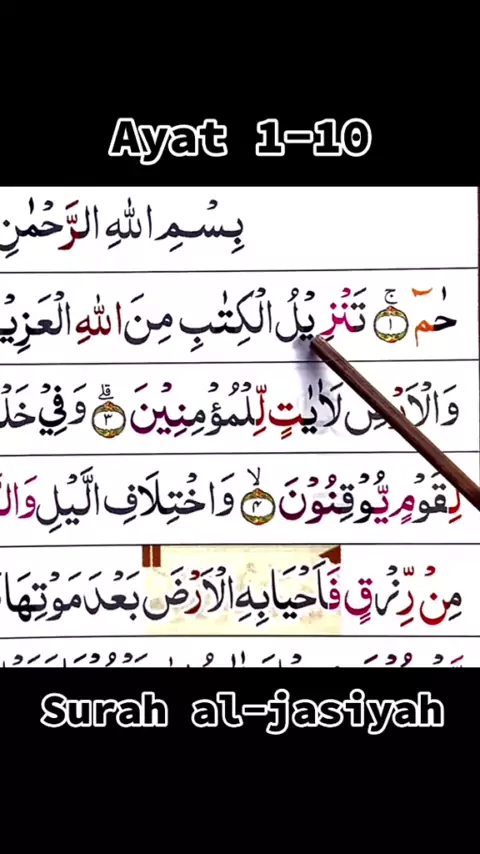 Ayat 1-10
بِسْمِ اللّٰهِ الرَّحْمٰنِ
حٰمٓ ۚ ۝١ تَنْزِيْلُ الْكِتٰبِ مِنَ اللّٰهِ الْعَزِيْ
وَالْاَرْضِ لَاٰيٰتٍ لِّلْمُؤْمِنِيْنَ ۝٣ۗ وَفِيْ خَلْ
لِقَوْمٍ يُّوْقِنُوْنَ ۝٤ۙ وَاخْتِلَافِ الَّيْلِ وَال
مِنْ رِّزْقٍ فَاَحْيَا بِهِ الْاَرْضَ بَعْدَ مَوْتِهَا
Surah al-jasiyah